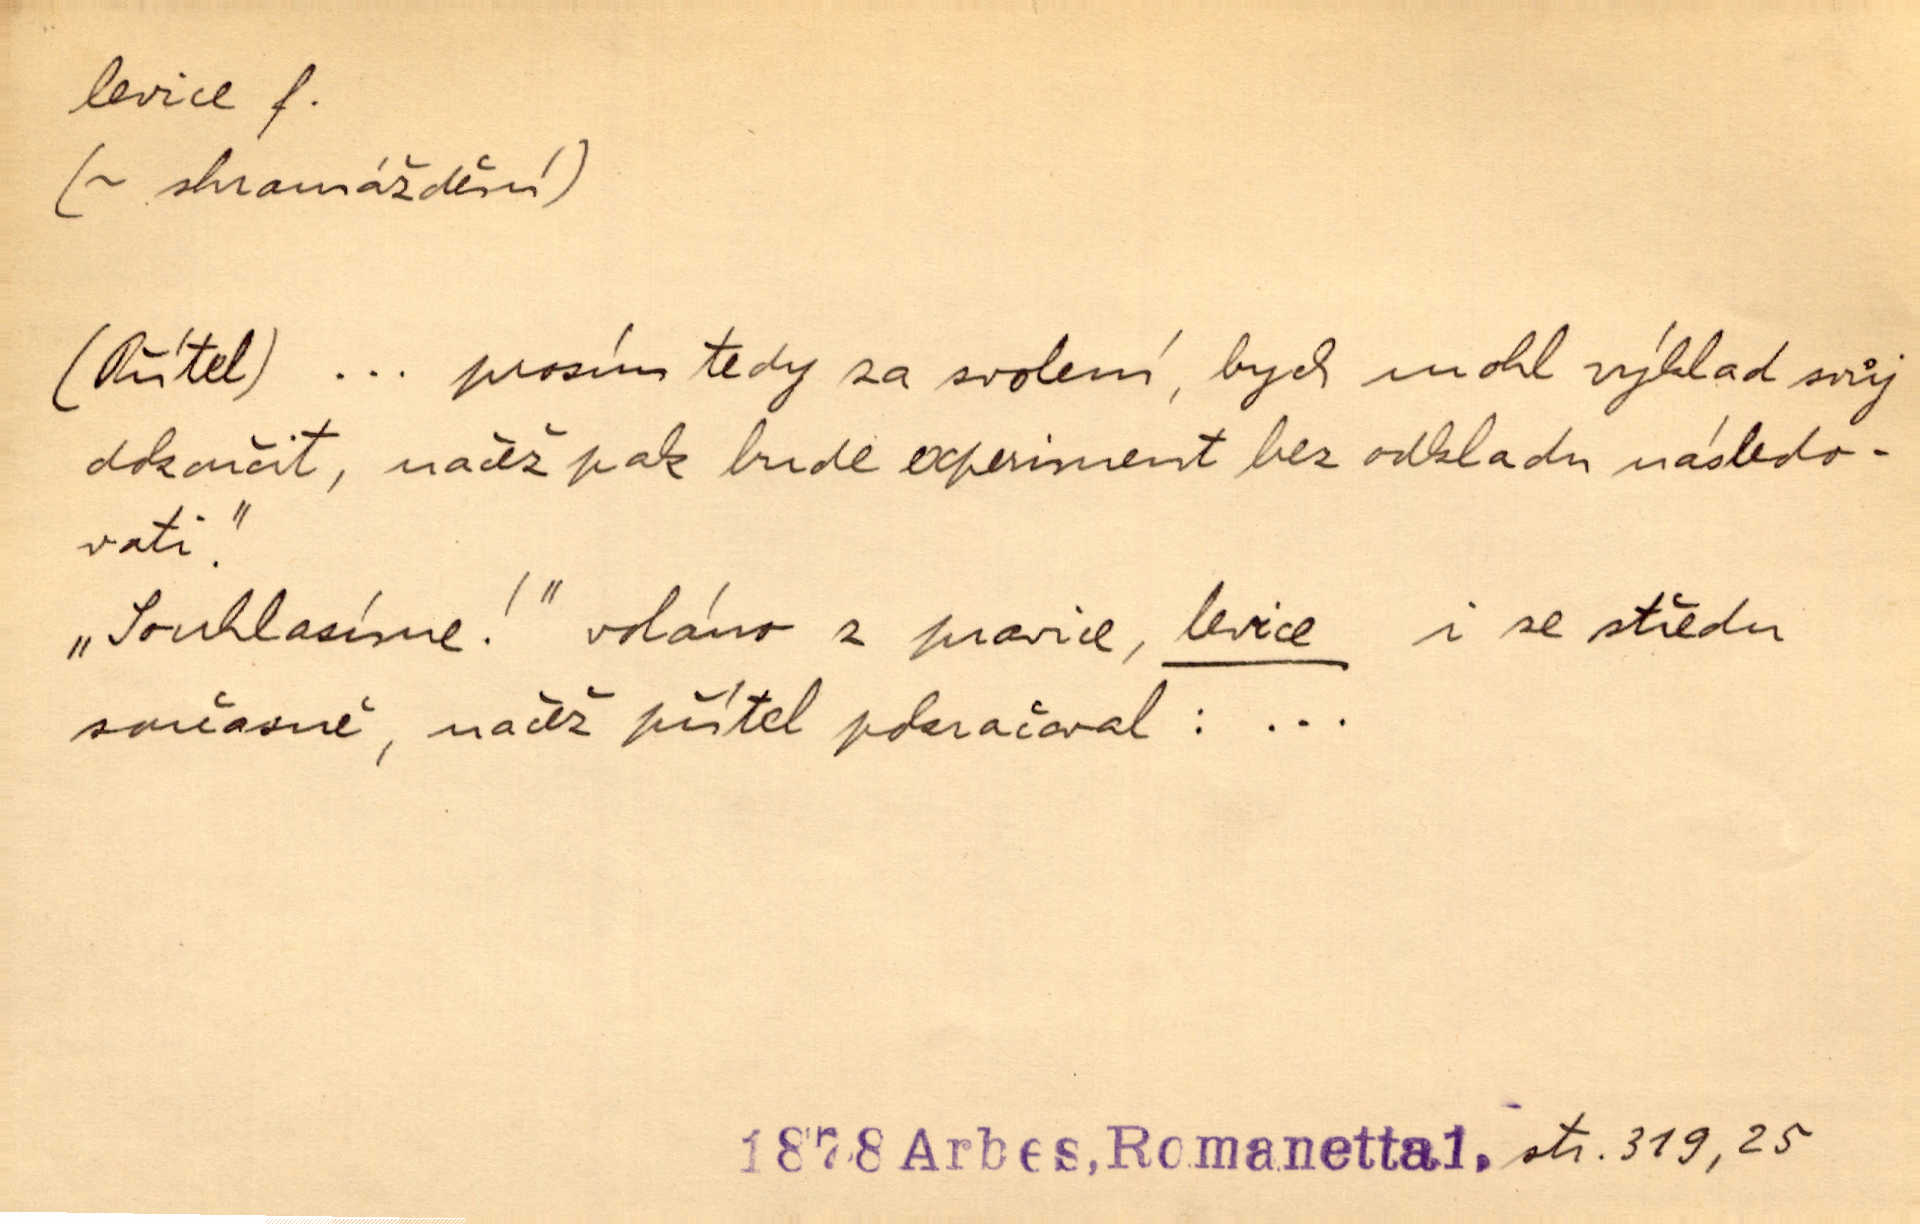 levice f.
(~ shromáždění)
(Přítel) ... prosím tedy za svolení, bych mohl výklad svůj
dokončit, načež pak bude experiment bez odkladu následo-
vati."
„Souhlasíme!" voláno z pravice, levice i ze středu
současně, načež přítel pokračoval : ...
1878 Arbes, Romanetta 1. str. 319, 25